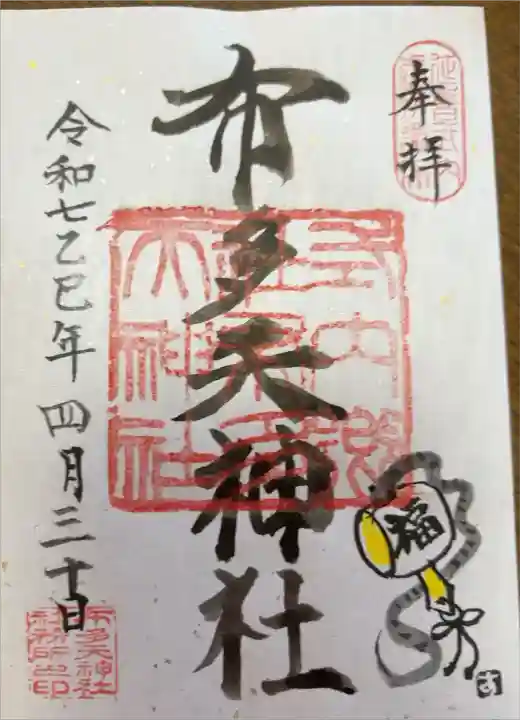 奉拝
布多天神社
令和七乙巳年四月三十日
福
布多天神社
社務所之印